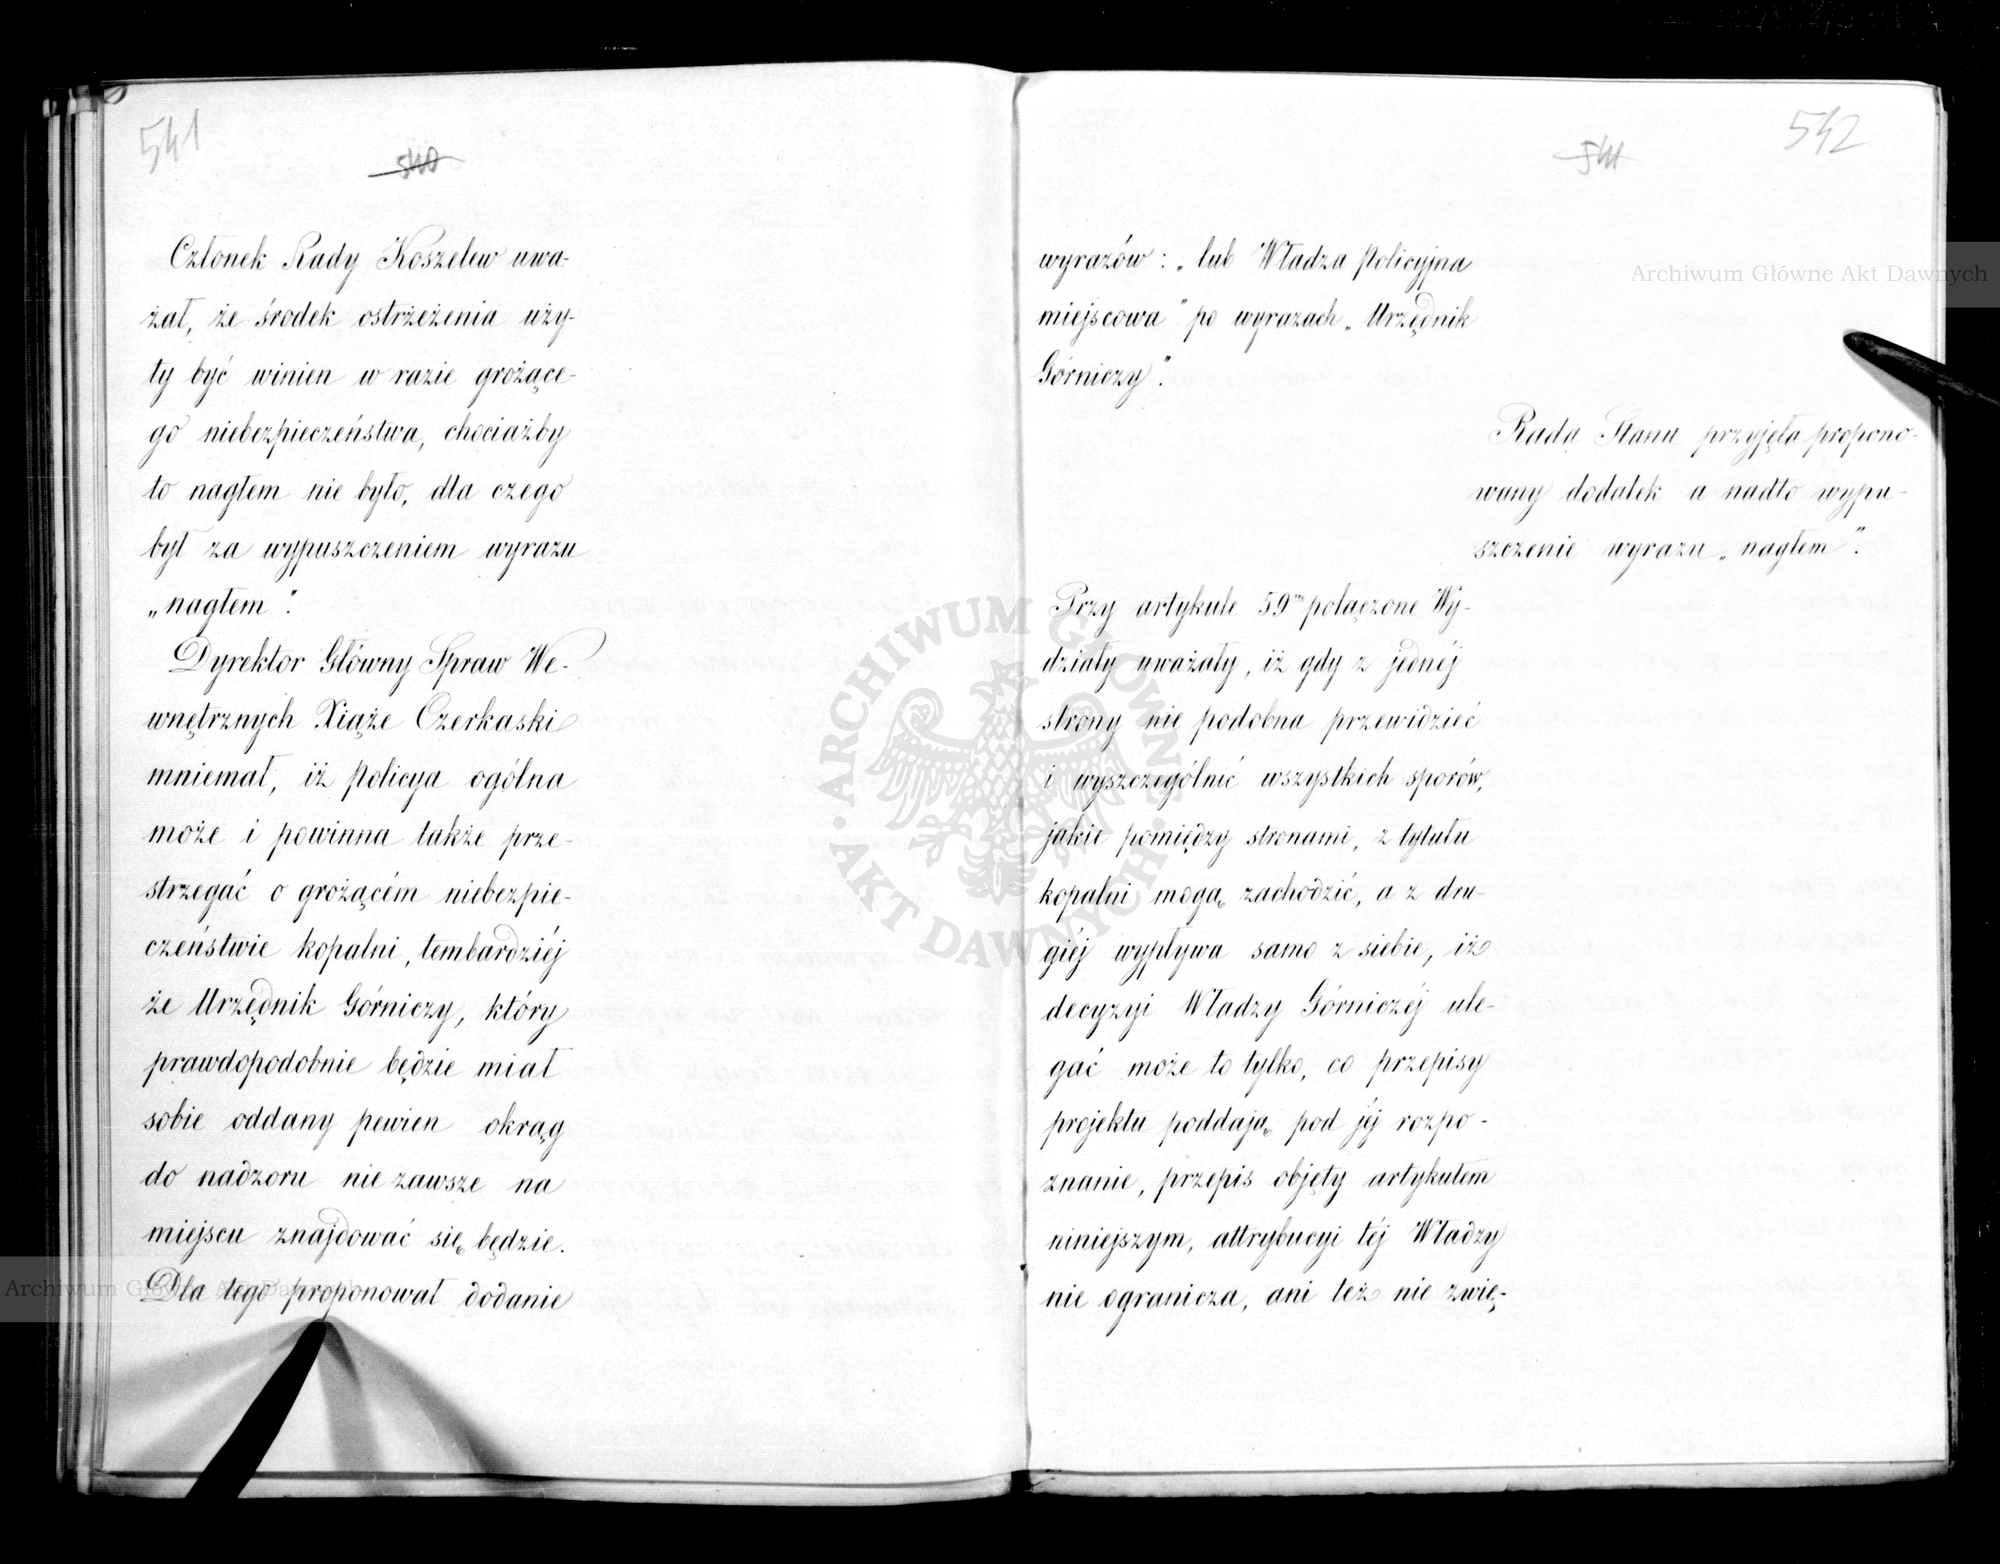 541
540
Członek Rady Koszelew uwa-
żał, że środek ostrżeżenia uży-
ty być winien w razie grożące-
go niebezpieczeństwa, chociażby
to nagłem nie było, dla czego
był za wypuszczeniem wyrazu
„nagłem”.
Dyrektor Główny Spraw We-
wnętrznych Xiąże Czerkaski
mniemał, iż Policya ogólna
może i powinna także prze-
strzegać o grożącém niebezpie-
czeństwie kopalni, tembardziéj
że Urzędnik Górniczy, który
prawdopodobnie będzie miał
sobie oddany pewien okrąg
do nadzoru nie zawsze na
miejscu znajdować się będzie.
Dla tego proponował dodanie
542
541
wyrazów: „lub Władza Policyjna
miejscowa” po wyrazach „Urzędnik
Górniczy”.
Rada Stanu przyjęła propono-
wany dodatek a nadto wypu-
szczenie wyrazu „nagłem”.
Przy artykule 59m połączone Wy-
działy uważały, iż gdy z jednéj
strony nie podobna przewidzieć
i wyszczególnić wszystkich sporów,
jakie pomiędzy stronami, z tytułu
kopalni mogą zachodzić, a z dru-
giéj wypływa samo z siebie, iż
decyzyi Władzy Górniczéj ule-
gać może to tylko, co przepisy
projektu poddają pod jéj rozpo-
znanie, przepis objęty artykułem
niniejszym, attrybucyi téj Władzy
nie ogranicza, ani też nie zwię-
Archiwum Główne Akt Dawnych
Archiwum Główne Akt Dawnych
ARCHIWUM GŁÓWNE · AKT DAWNYCH ·